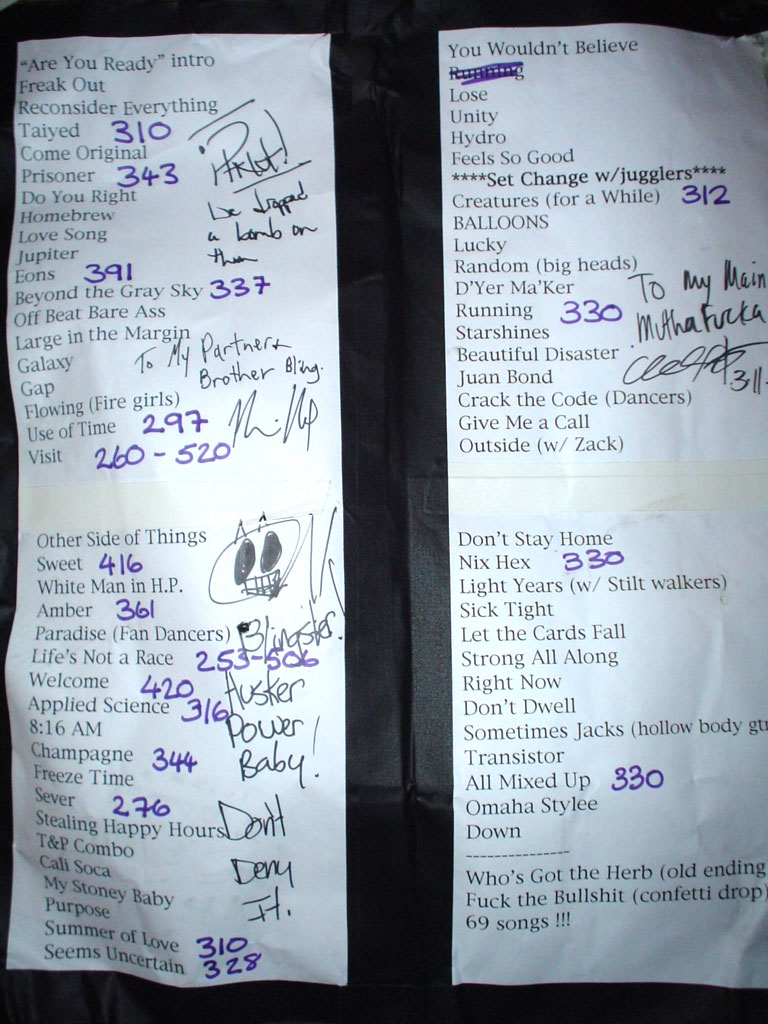 "Are You Ready" intro
Freak Out
Reconsider Everything
Taiyed 310
Come Original
Prisoner 343
Do You Right
Homebrew
Love Song
Jupiter
Eons 391
Beyond the Gray Sky 337
Off Beat Bare Ass
Large in the Margin
Galaxy
Gap
Flowing (Fire girls)
Use of Time 297
Visit 260 - 520
We dropped
a bomb on
them
To My Partner &
Brother Bling.
Other Side of Things
Sweet 416
White Man in H.P.
Amber 361
Paradise (Fan Dancers)
Life's Not a Race 253-506
Welcome 420
Applied Science 316
8:16 AM
Champagne 344
Freeze Time
Sever 276
Stealing Happy Hours
T&P Combo
Cali Soca
My Stoney Baby
Purpose
Summer of Love 310
Seems Uncertain 328
Blingster!
Husker
Power
Baby!
Don't
Deny
It.
You Wouldn't Believe
Running
Lose
Unity
Hydro
Feels So Good
****Set Change w/jugglers****
Creatures (for a While) 312
BALLOONS
Lucky
Random (big heads)
D'Yer Ma'Ker
Running 330
Starshines
Beautiful Disaster
Juan Bond
Crack the Code (Dancers)
Give Me a Call
Outside (w/ Zack)
To My Main
MuthaFucka
311
Don't Stay Home
Nix Hex 330
Light Years (w/ Stilt walkers)
Sick Tight
Let the Cards Fall
Strong All Along
Right Now
Don't Dwell
Sometimes Jacks (hollow body gtr
Transistor
All Mixed Up 330
Omaha Stylee
Down
---------------
Who's Got the Herb (old ending
Fuck the Bullshit (confetti drop)
69 songs !!!